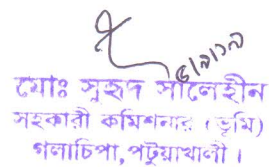 মোঃ সুহৃদ সালেহীন
সহকারী কমিশনার (ভূমি)
গলাচিপা, পটুয়াখালী।